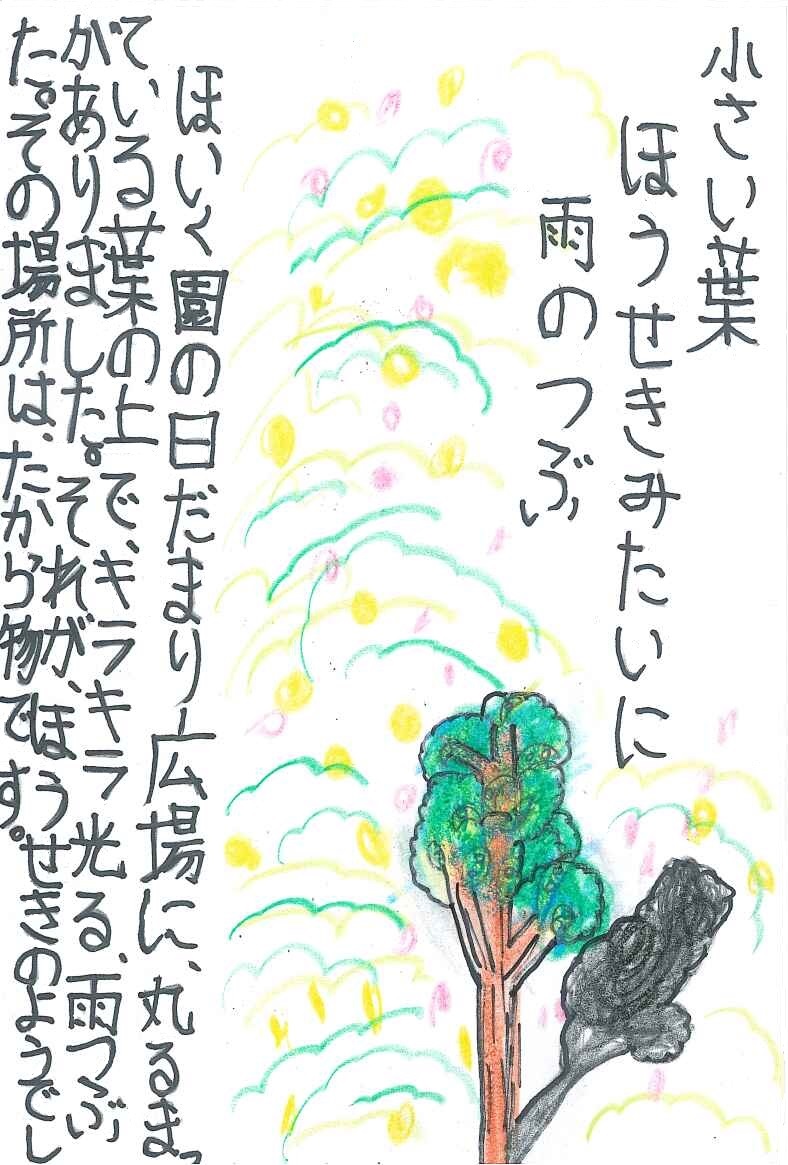 小さい葉
ほうせきみたいに
雨のつぶ
ほいく園の日だまり広場に、丸るまっ
ている葉の上で、キラキラ光る、雨つぶ
がありました。それが、ほうせきのようでし
た。その場所は、たから物です。